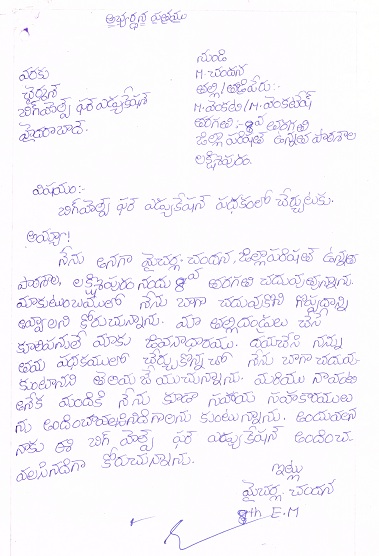 అభ్యర్థన పత్రము
నుండి
M. చందన
తల్లి/తండ్రి పేరు:-
M. వెంకట / M. వెంకటేష్
తరగతి :- 8వ తరగతి
జిల్లా పరిషత్ ఉన్నత పాఠశాల
లక్ష్మీపురం.
వరకు
చైర్మన్
బిగ్ హెల్ప్ ఫర్ ఎడ్యుకేషన్
హైదరాబాద్.
విషయం:-
బిగ్ హెల్ప్ ఫర్ ఎడ్యుకేషన్ పథకంలో చేర్చుటకు.
అయ్యా!
నేను అనగా మైచర్ల. చందన, జిల్లా పరిషత్ ఉన్నత
పాఠశాల, లక్ష్మీపురం నందు 8వ తరగతి చదువుతున్నాను.
మా కుటుంబములో నేను బాగా చదువుకొని గొప్పదాన్ని
అవ్వాలని కోరుచున్నాను. మా తల్లిదండ్రులు చేసే
కూలిపనులే మాకు జీవనాధారము. దయచేసి నన్ను
తమ పథకములో చేర్చుకొన్నచో నేను బాగా చదువు
కుంటానని తెలియ చేయుచున్నాను. మరియు నావంటి
అనేక మందికి నేను కూడా సహాయ సహకారములు
ను అందించాలని కుంటున్నాను. అందువలన
నాకు ఈ బిగ్ హెల్ప్ ఫర్ ఎడ్యుకేషన్ అందించ
వలసినదిగా కోరుచున్నాను.
ఇట్లు
మైచర్ల చందన
8th E.M